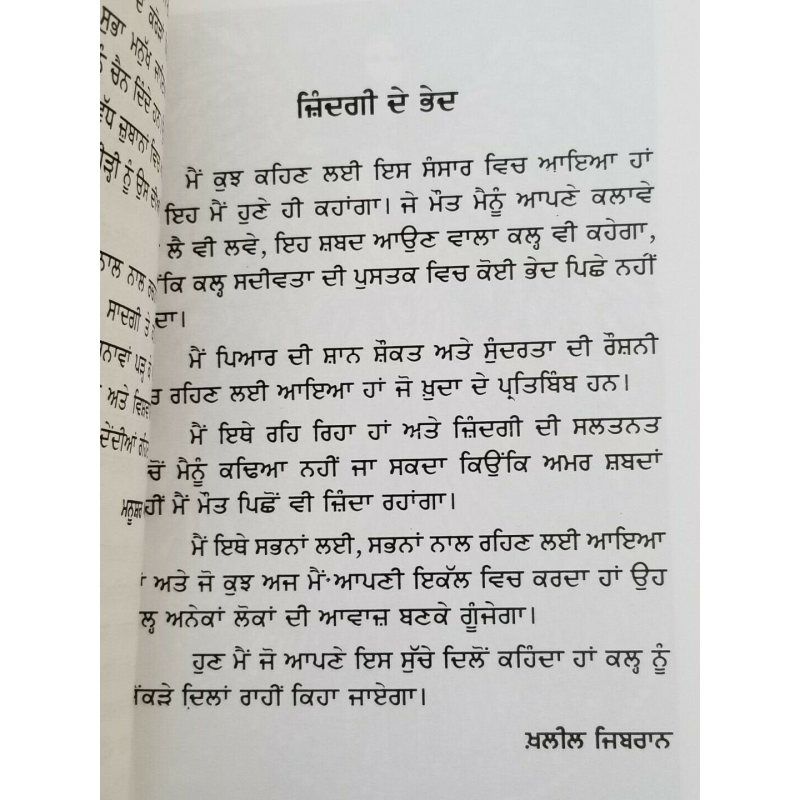 ਦੇ ਕਰੋੜਾਂ
ਸੁਭਾ ਮਨੁੱਖ
ਚੈਨ ਦਿੰਦੇ ਹਨ
ਜ਼ੁਬਾਨਾਂ
ਨੂੰ ਉਸ
ਨਾਲ ਨਾਲ
ਸਾਦਗੀ ਤੇ
ਪੜ੍ਹ
ਅਤੇ
ਜ਼ਿੰਦਗੀ ਦੇ ਭੇਦ
ਮੈਂ ਕੁਝ ਕਹਿਣ ਲਈ ਇਸ ਸੰਸਾਰ ਵਿਚ ਆਇਆ ਹਾਂ
ਇਹ ਮੈਂ ਹੁਣੇ ਹੀ ਕਹਾਂਗਾ। ਜੇ ਮੌਤ ਮੈਨੂੰ ਆਪਣੇ ਕਲਾਵੇ
ਲੈ ਵੀ ਲਵੇ, ਇਹ ਸ਼ਬਦ ਆਉਣ ਵਾਲਾ ਕਲ੍ਹ ਵੀ ਕਹੇਗਾ,
ਕਲ੍ਹ ਸਦੀਵਤਾ ਦੀ ਪੁਸਤਕ ਵਿਚ ਕੋਈ ਭੇਦ ਪਿਛੇ ਨਹੀਂ
ਦਾ।
ਮੈਂ ਪਿਆਰ ਦੀ ਸ਼ਾਨ ਸ਼ੌਕਤ ਅਤੇ ਸੁੰਦਰਤਾ ਦੀ ਰੌਸ਼ਨੀ
ਰਹਿਣ ਲਈ ਆਇਆ ਹਾਂ ਜੋ ਖ਼ੁਦਾ ਦੇ ਪ੍ਰਤਿਬਿੰਬ ਹਨ।
ਮੈਂ ਇਥੇ ਰਹਿ ਰਿਹਾ ਹਾਂ ਅਤੇ ਜ਼ਿੰਦਗੀ ਦੀ ਸਲਤਨਤ
ਚੋਂ ਮੈਨੂੰ ਕਢਿਆ ਨਹੀਂ ਜਾ ਸਕਦਾ ਕਿਉਂਕਿ ਅਮਰ ਸ਼ਬਦਾਂ
ਮੈਂ ਮੌਤ ਪਿਛੋਂ ਵੀ ਜ਼ਿੰਦਾ ਰਹਾਂਗਾ।
ਮੈਂ ਇਥੇ ਸਭਨਾਂ ਲਈ, ਸਭਨਾਂ ਨਾਲ ਰਹਿਣ ਲਈ ਆਇਆ
ਅਤੇ ਜੋ ਕੁਝ ਅਜ ਮੈਂ ਆਪਣੀ ਇਕੱਲ ਵਿਚ ਕਰਦਾ ਹਾਂ ਉਹ
ਅਨੇਕਾਂ ਲੋਕਾਂ ਦੀ ਆਵਾਜ਼ ਬਣਕੇ ਗੂੰਜੇਗਾ।
ਹੁਣ ਮੈਂ ਜੋ ਆਪਣੇ ਇਸ ਸੁੱਚੇ ਦਿਲੋਂ ਕਹਿੰਦਾ ਹਾਂ ਕਲ੍ਹ ਨੂੰ
ਦਿਲਾਂ ਰਾਹੀਂ ਕਿਹਾ ਜਾਏਗਾ।
ਖ਼ਲੀਲ ਜਿਬਰਾਨ